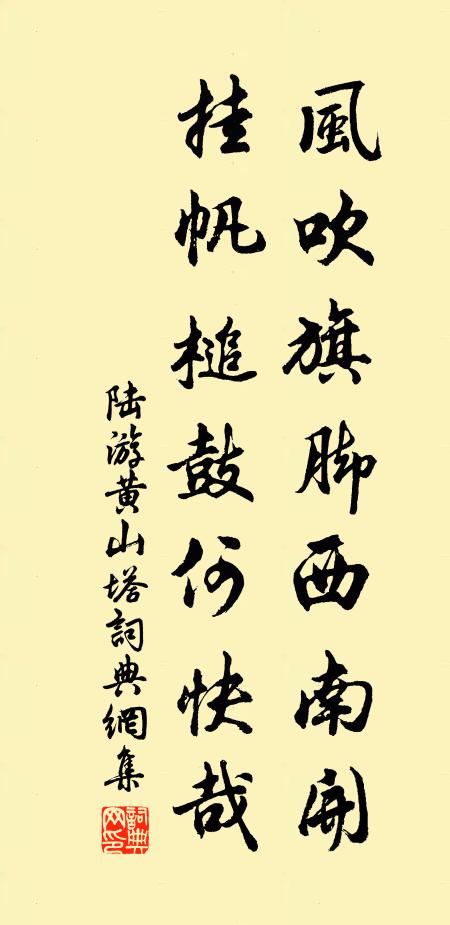 風吹旗脚西南開
挂帆槌鼓何快哉
陆游黄山塔詞典網集
詞典网印